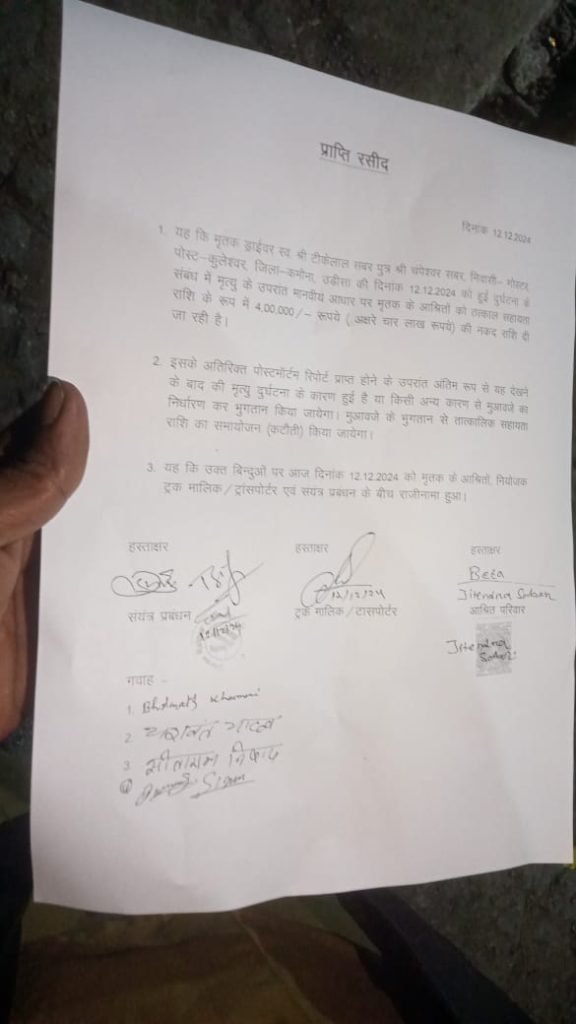 प्राप्ति रसीद
दिनांक 12.12.2024
1. यह कि मृतक ड्राईवर स्व श्री टीकेलाल सबर पुत्र श्री चपेश्वर सबर, निवासी- मोस्टर,
पोस्ट-कुलेश्वर, जिला-कमौना, उडीसा की दिनांक 12.12.2024 को हुई दुर्घटना के
संबंध में मृत्यु के उपरांत मानवीय आधार पर मृतक के आश्रितों को तत्काल सहायता
राशि के रूप में 4,00,000/- रूपये ( अक्षरे चार लाख रूपये) की नकद राशि दी
जा रही है।
2. इसके अतिरिक्त पोस्टमॉर्टम रिपोर्ट प्राप्त होने के उपरांत अंतिम रूप से यह देखने
के बाद की मृत्यु दुर्घटना के कारण हुई है या किसी अन्य कारण से मुआवजे का
निर्धारण कर भुगतान किया जायेगा। मुआवजे के भुगतान से तात्कालिक सहायता
राशि का समायोजन (कटौती) किया जायेगा।
3. यह कि उक्त बिन्दुओं पर आज दिनांक 12.12.2024 को मृतक के आश्रितों, नियोजक
ट्रक मालिक/ट्रांसपोर्टर एवं सयंत्र प्रबंधन के बीच राजीनामा हुआ।
हस्ताक्षर हस्ताक्षर हस्ताक्षर
12/12/24 Beta
Jitendra
सयंत्र प्रबंधन ट्रक मालिक/टासपोर्टर आश्रित परिवार
12/12/24
Jitendra
गवाह -
1.
2. यशवंत यादव
3. सीताराम निषाद